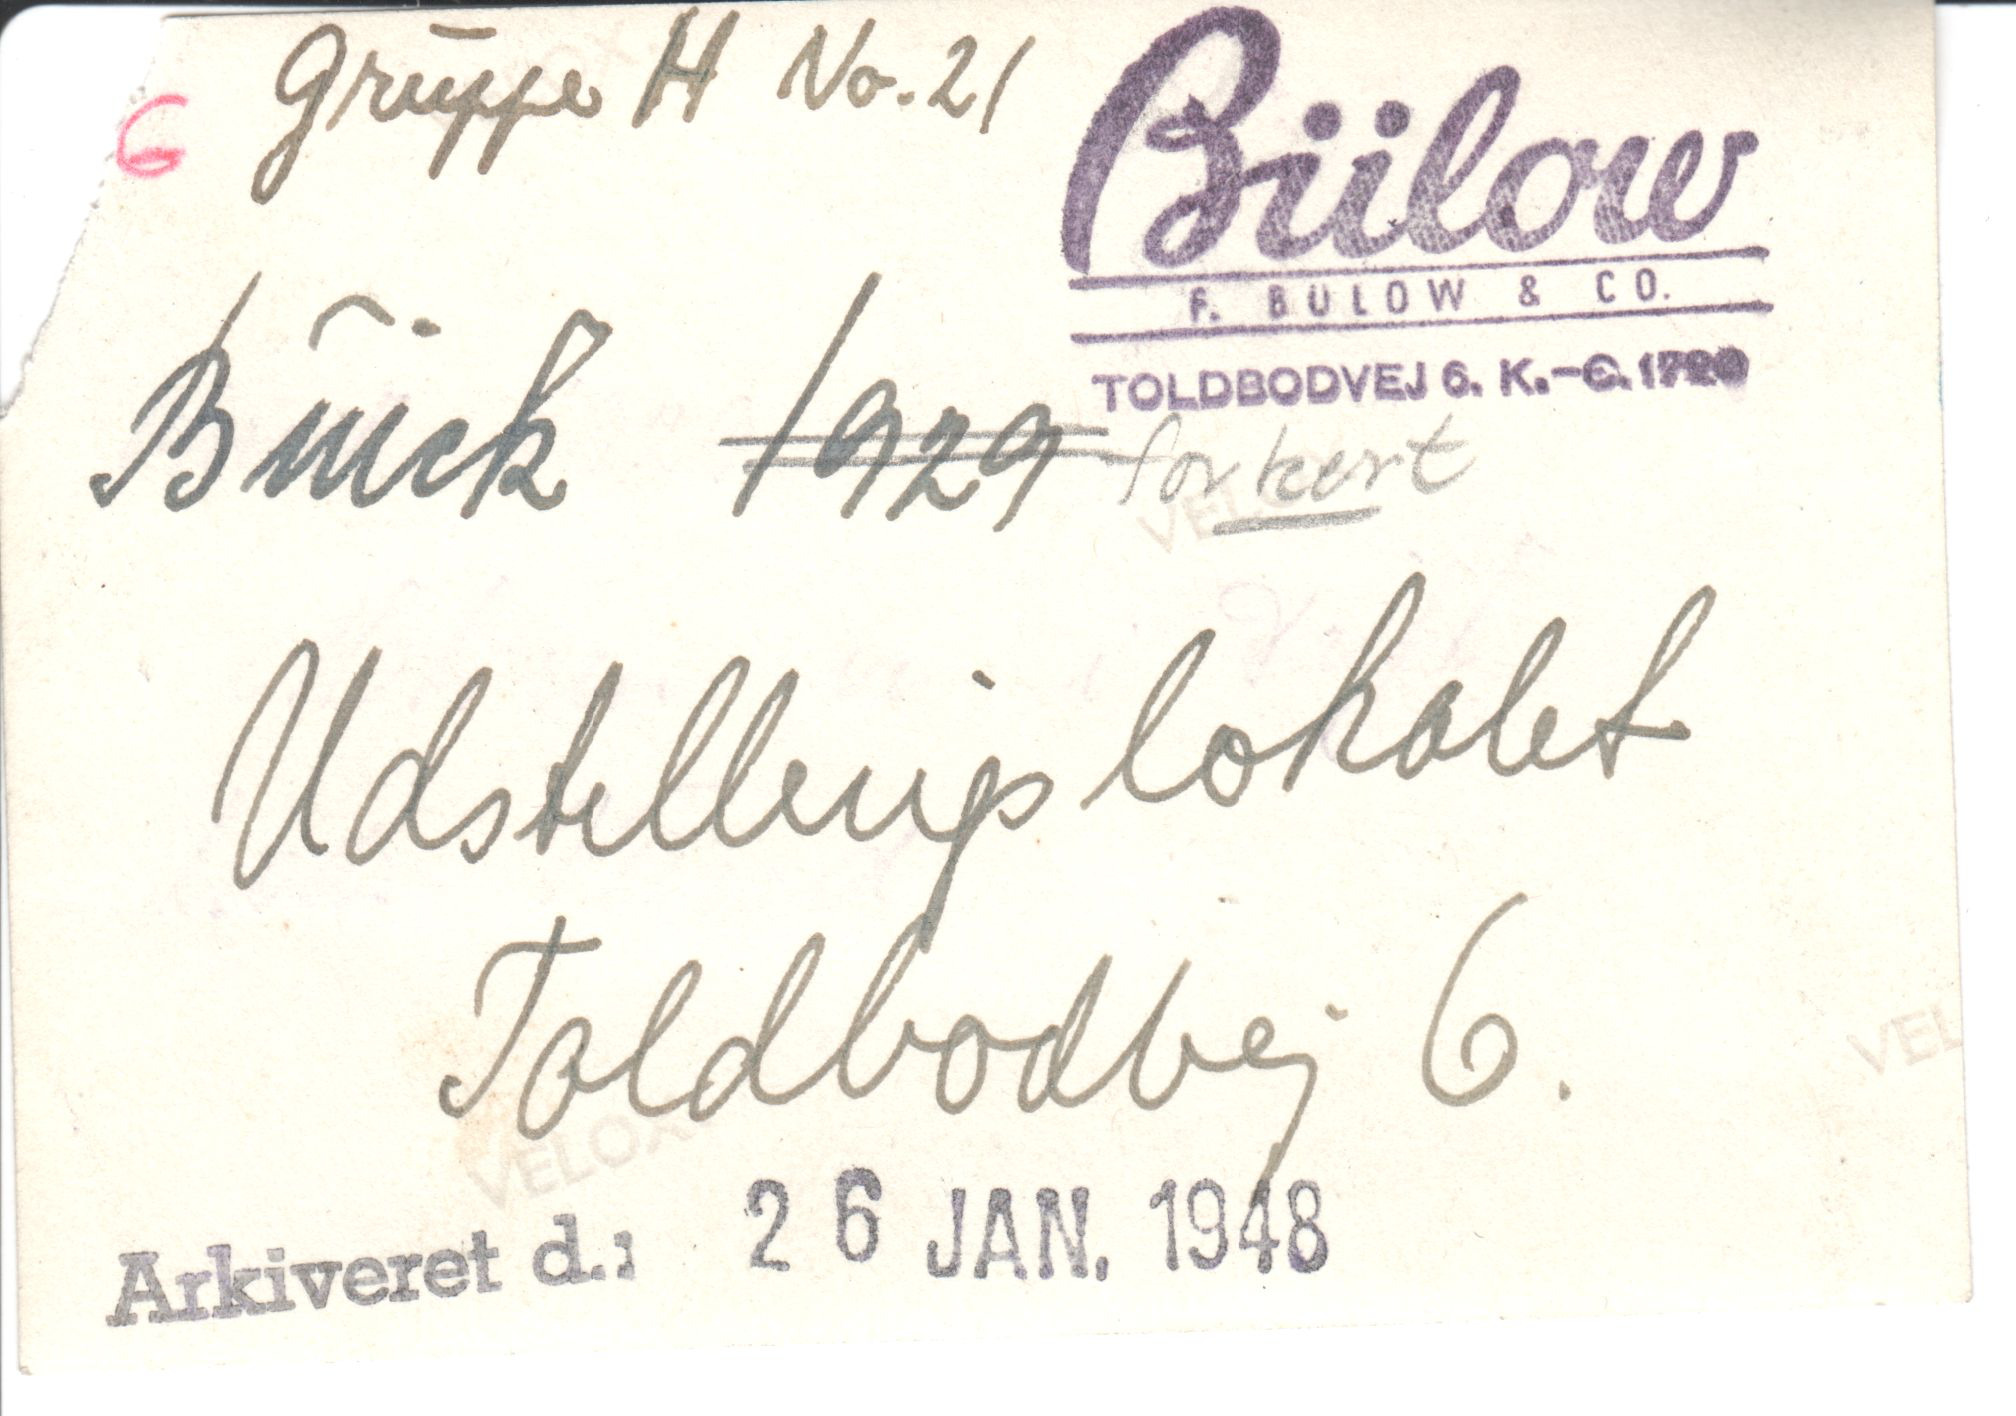 G Gruppe H No. 21
Bülow
F. BÜLOW & CO.
TOLDBODVEJ 6. K.-C. 1720
Buick 1929 forkert
VELOX
Udstillingslokalet
Toldbodvej 6.
VELOX
VEL
Arkiveret d.: 26 JAN. 1948